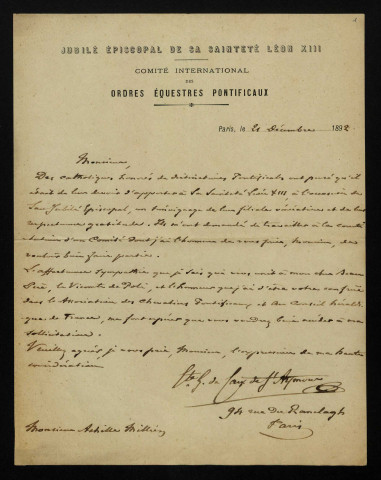 JUBILÉ ÉPISCOPAL DE SA SAINTETÉ LÉON XIII
COMITÉ INTERNATIONAL
DES
ORDRES ÉQUESTRES PONTIFICAUX
Paris, le 21 Décembre 1892
Monsieur,
Des catholiques honorés de distinctions Pontificales ont pensé qu'il
était de leur devoir d'apporter à Sa Sainteté Léon XIII, à l'occasion de
Son Jubilé Episcopal, un témoignage de leur filiale vénération et de leur
respectueuse gratitude. Ils m'ont demandé de travailler à la consti-
tution d'un Comité dont j'ai l'honneur de vous prier, Monsieur, de
vouloir bien faire partie.
L'affectueuse sympathie que je sais qui vous unit à mon cher Beau
Père, le Vicomte de Poli, et l'honneur que j'ai d'être votre confrère
dans l'Association des Chevaliers Pontificaux et au Conseil héraldi-
que de France, me font espérer que vous voudrez bien accéder à ma
sollicitation.
Veuillez agréer, je vous prie, Monsieur, l'expression de ma haute
considération
Cte G. de Caix de St Aymour
94 rue du Ranelagh
Paris
Monsieur Achille Millien